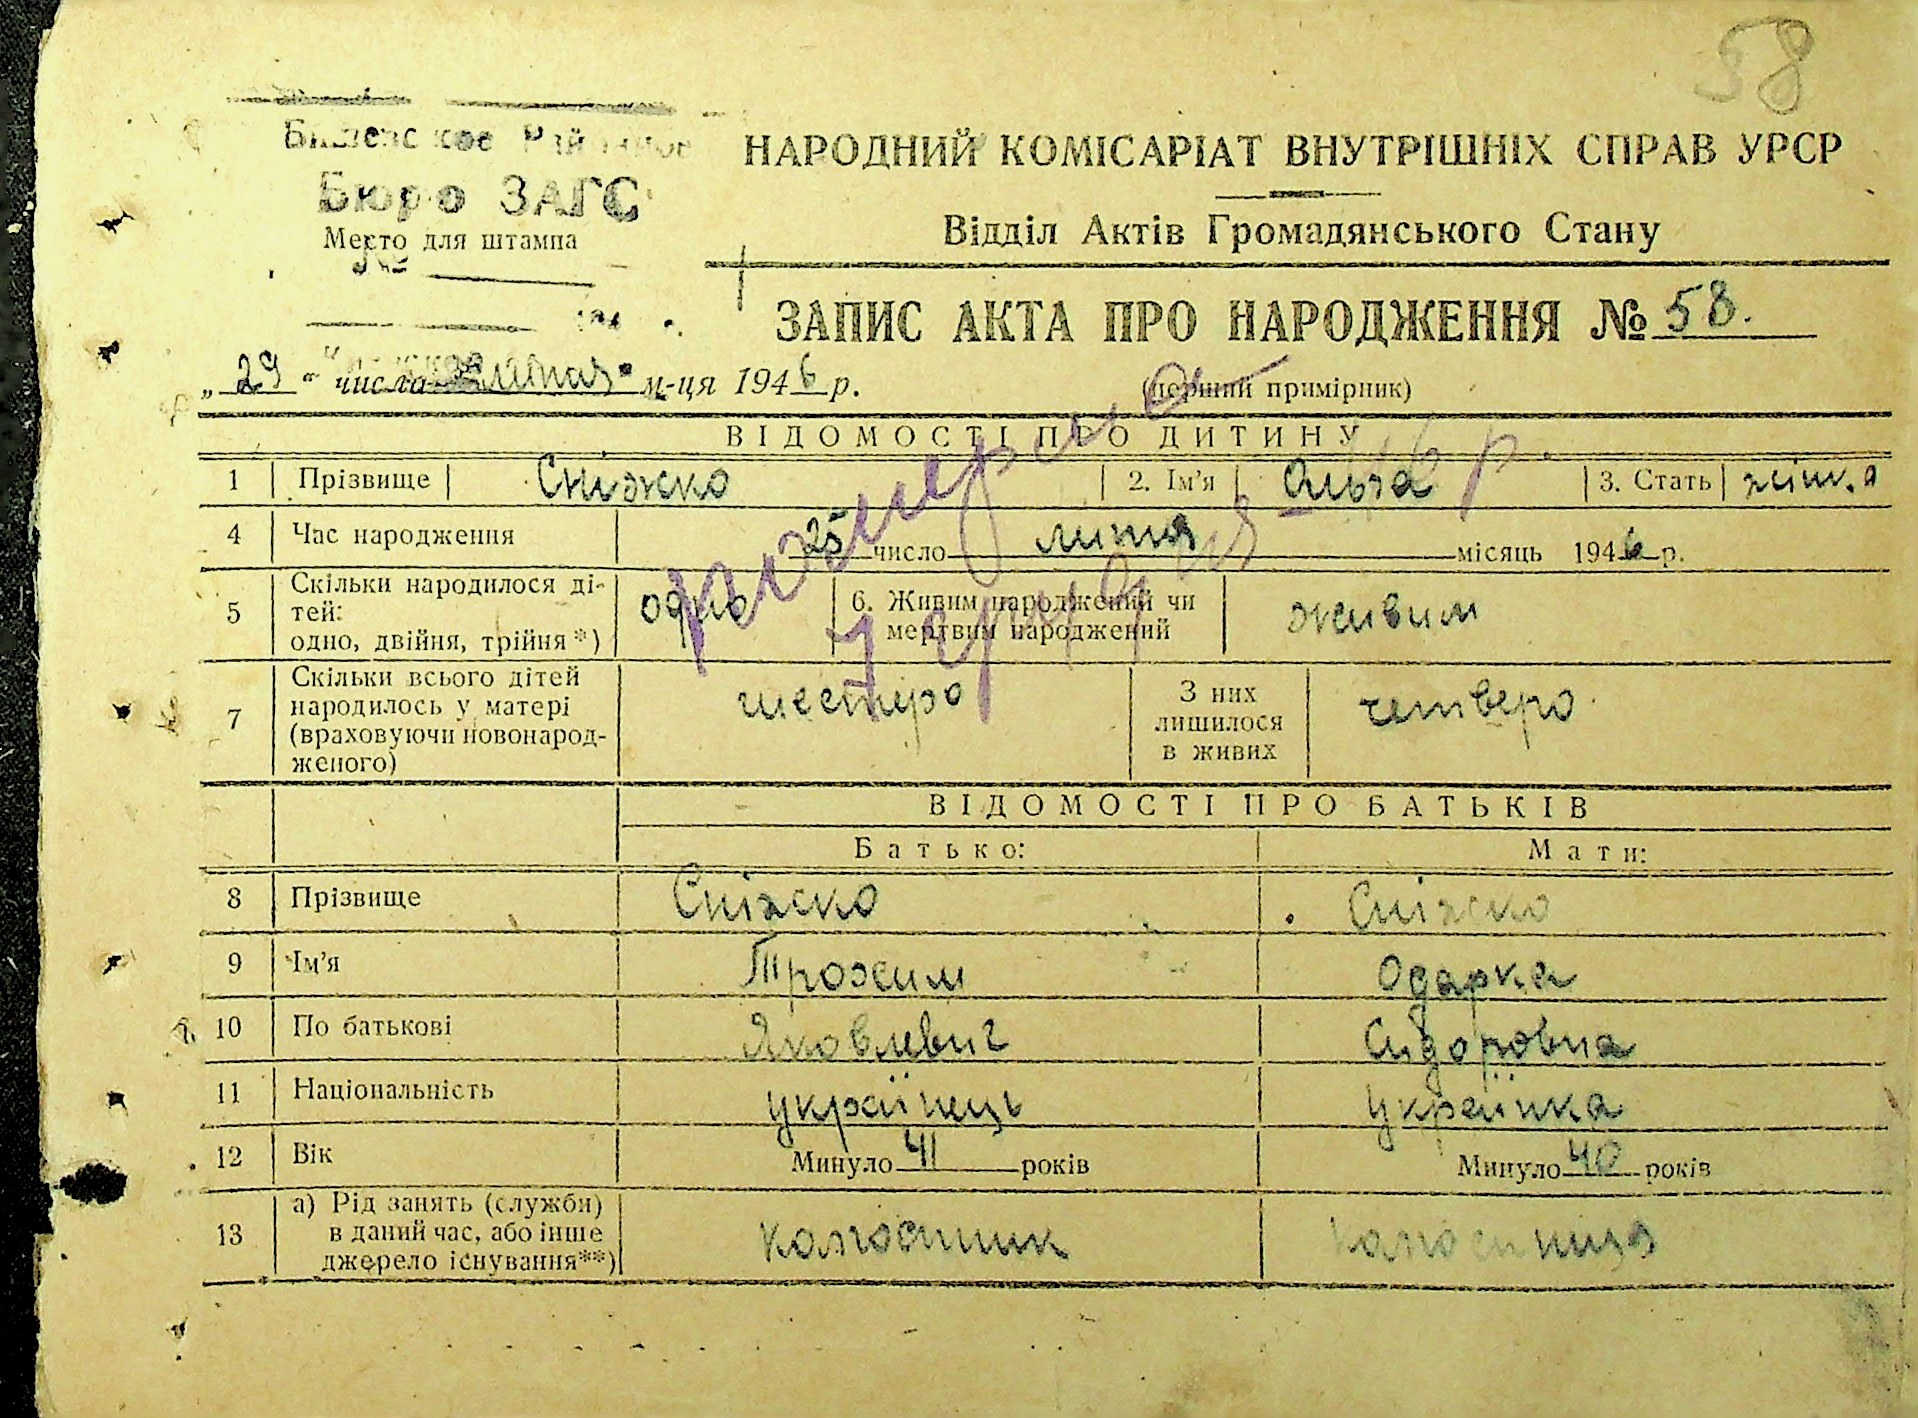 58
Бюро ЗАГС
Место для штампа
НАРОДНИЙ КОМІСАРІАТ ВНУТРІШНІХ СПРАВ УРСР
Відділ Актів Громадянського Стану
ЗАПИС АКТА ПРО НАРОДЖЕННЯ № 58.
„29“ числа м-ця 1946 р.
(перший примірник)
ВІДОМОСТІ ПРО ДИТИНУ
1 Прізвище Сніжко 2. Ім'я Ольга 3. Стать жіноча
4 Час народження 25 число липня місяць 1946 р.
5 Скільки народилося ді-
тей:
одно, двійня, трійня*)
одно
6. Живим народжений чи
мертвим народжений
живим
7 Скільки всього дітей
народилось у матері
(враховуючи новонарод-
женого)
шестеро
З них
лишилося
в живих
четверо
ВІДОМОСТІ ПРО БАТЬКІВ
Батько: Мати:
8 Прізвище Сніжко Сніжко
9 Ім'я Трохим Одарка
10 По батькові Яковлевич Сидоровна
11 Національність українець українка
12 Вік Минуло 41 років Минуло 40 років
13 а) Рід занять (служби)
в даний час, або інше
джерело існування**)
колгоспник колгоспниця